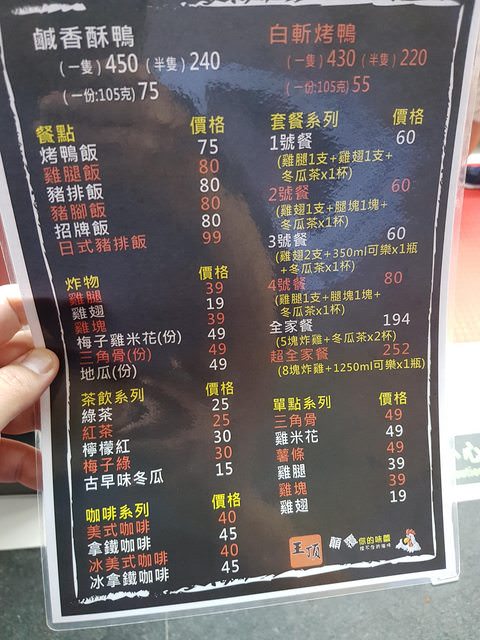 鹹香酥鴨
(一隻) 450 (半隻) 240
(一份:105克) 75
白斬烤鴨
(一隻) 430 (半隻) 220
(一份:105克) 55
餐點 價格
烤鴨飯 75
雞腿飯 80
豬排飯 80
豬腳飯 80
招牌飯 80
日式豬排飯 99
炸物 價格
雞腿 39
雞翅 19
雞塊 39
梅子雞米花(份) 49
三角骨(份) 49
地瓜(份) 49
茶飲系列 價格
綠茶 25
紅茶 25
檸檬紅 30
梅子綠 30
古早味冬瓜 15
咖啡系列 價格
美式咖啡 40
拿鐵咖啡 45
冰美式咖啡 40
冰拿鐵咖啡 45
套餐系列 價格
1號餐 60
(雞腿1支+雞翅1支+
冬瓜茶x1杯)
2號餐 60
(雞翅1支+腿塊1塊+
冬瓜茶x1杯)
3號餐 60
(雞翅2支+350ml可樂x1瓶
+冬瓜茶x1杯)
4號餐 80
(雞腿1支+腿塊1塊+
冬瓜茶x1杯)
全家餐 194
(5塊炸雞+冬瓜茶x2杯)
超全家餐 252
(8塊炸雞+1250ml可樂x1瓶)
單點系列 價格
三角骨 49
雞米花 49
薯條 49
雞腿 39
雞塊 39
雞翅 19
王頂
你的味蕾